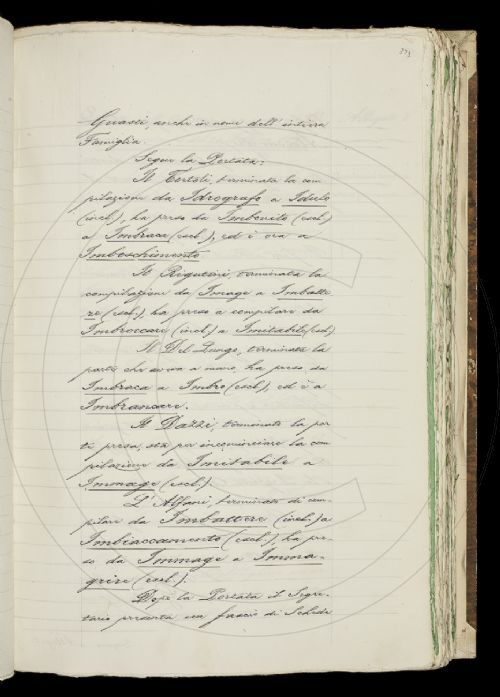 373
Guasti, anche in nome dell'intiera
Famiglia.
Segue la Portata:
Il Tortoli, terminata la com-
pilazione da Idrografo a Idulo
(incl.), ha preso da Imbenito (escl.)
a Imbraca (escl.), ed è ora a
Imboschimento
Il Rigutini, terminata la
compilazione da Image a Imbatte
re (escl.), ha preso a compilare da
Imbroccare (incl.) a Imitabile (escl.)
Il Del Lungo, terminata la
parte che aveva a mano, ha preso da
Imbraca a Imbro (escl.), ed è a
Imbrancare.
Il Dazzi, terminata la par
te presa, sta per incominciare la com
pilazione da Imitabile a
Immage (escl.).
L'Alfani, terminato di com-
pilare da Imbattere (incl.) a
Imbiaccamento (escl.), ha pre-
so da Immage a Imma-
grire (escl.).
Dopo la Portata il Segre-
tario presenta un fascio di Schede